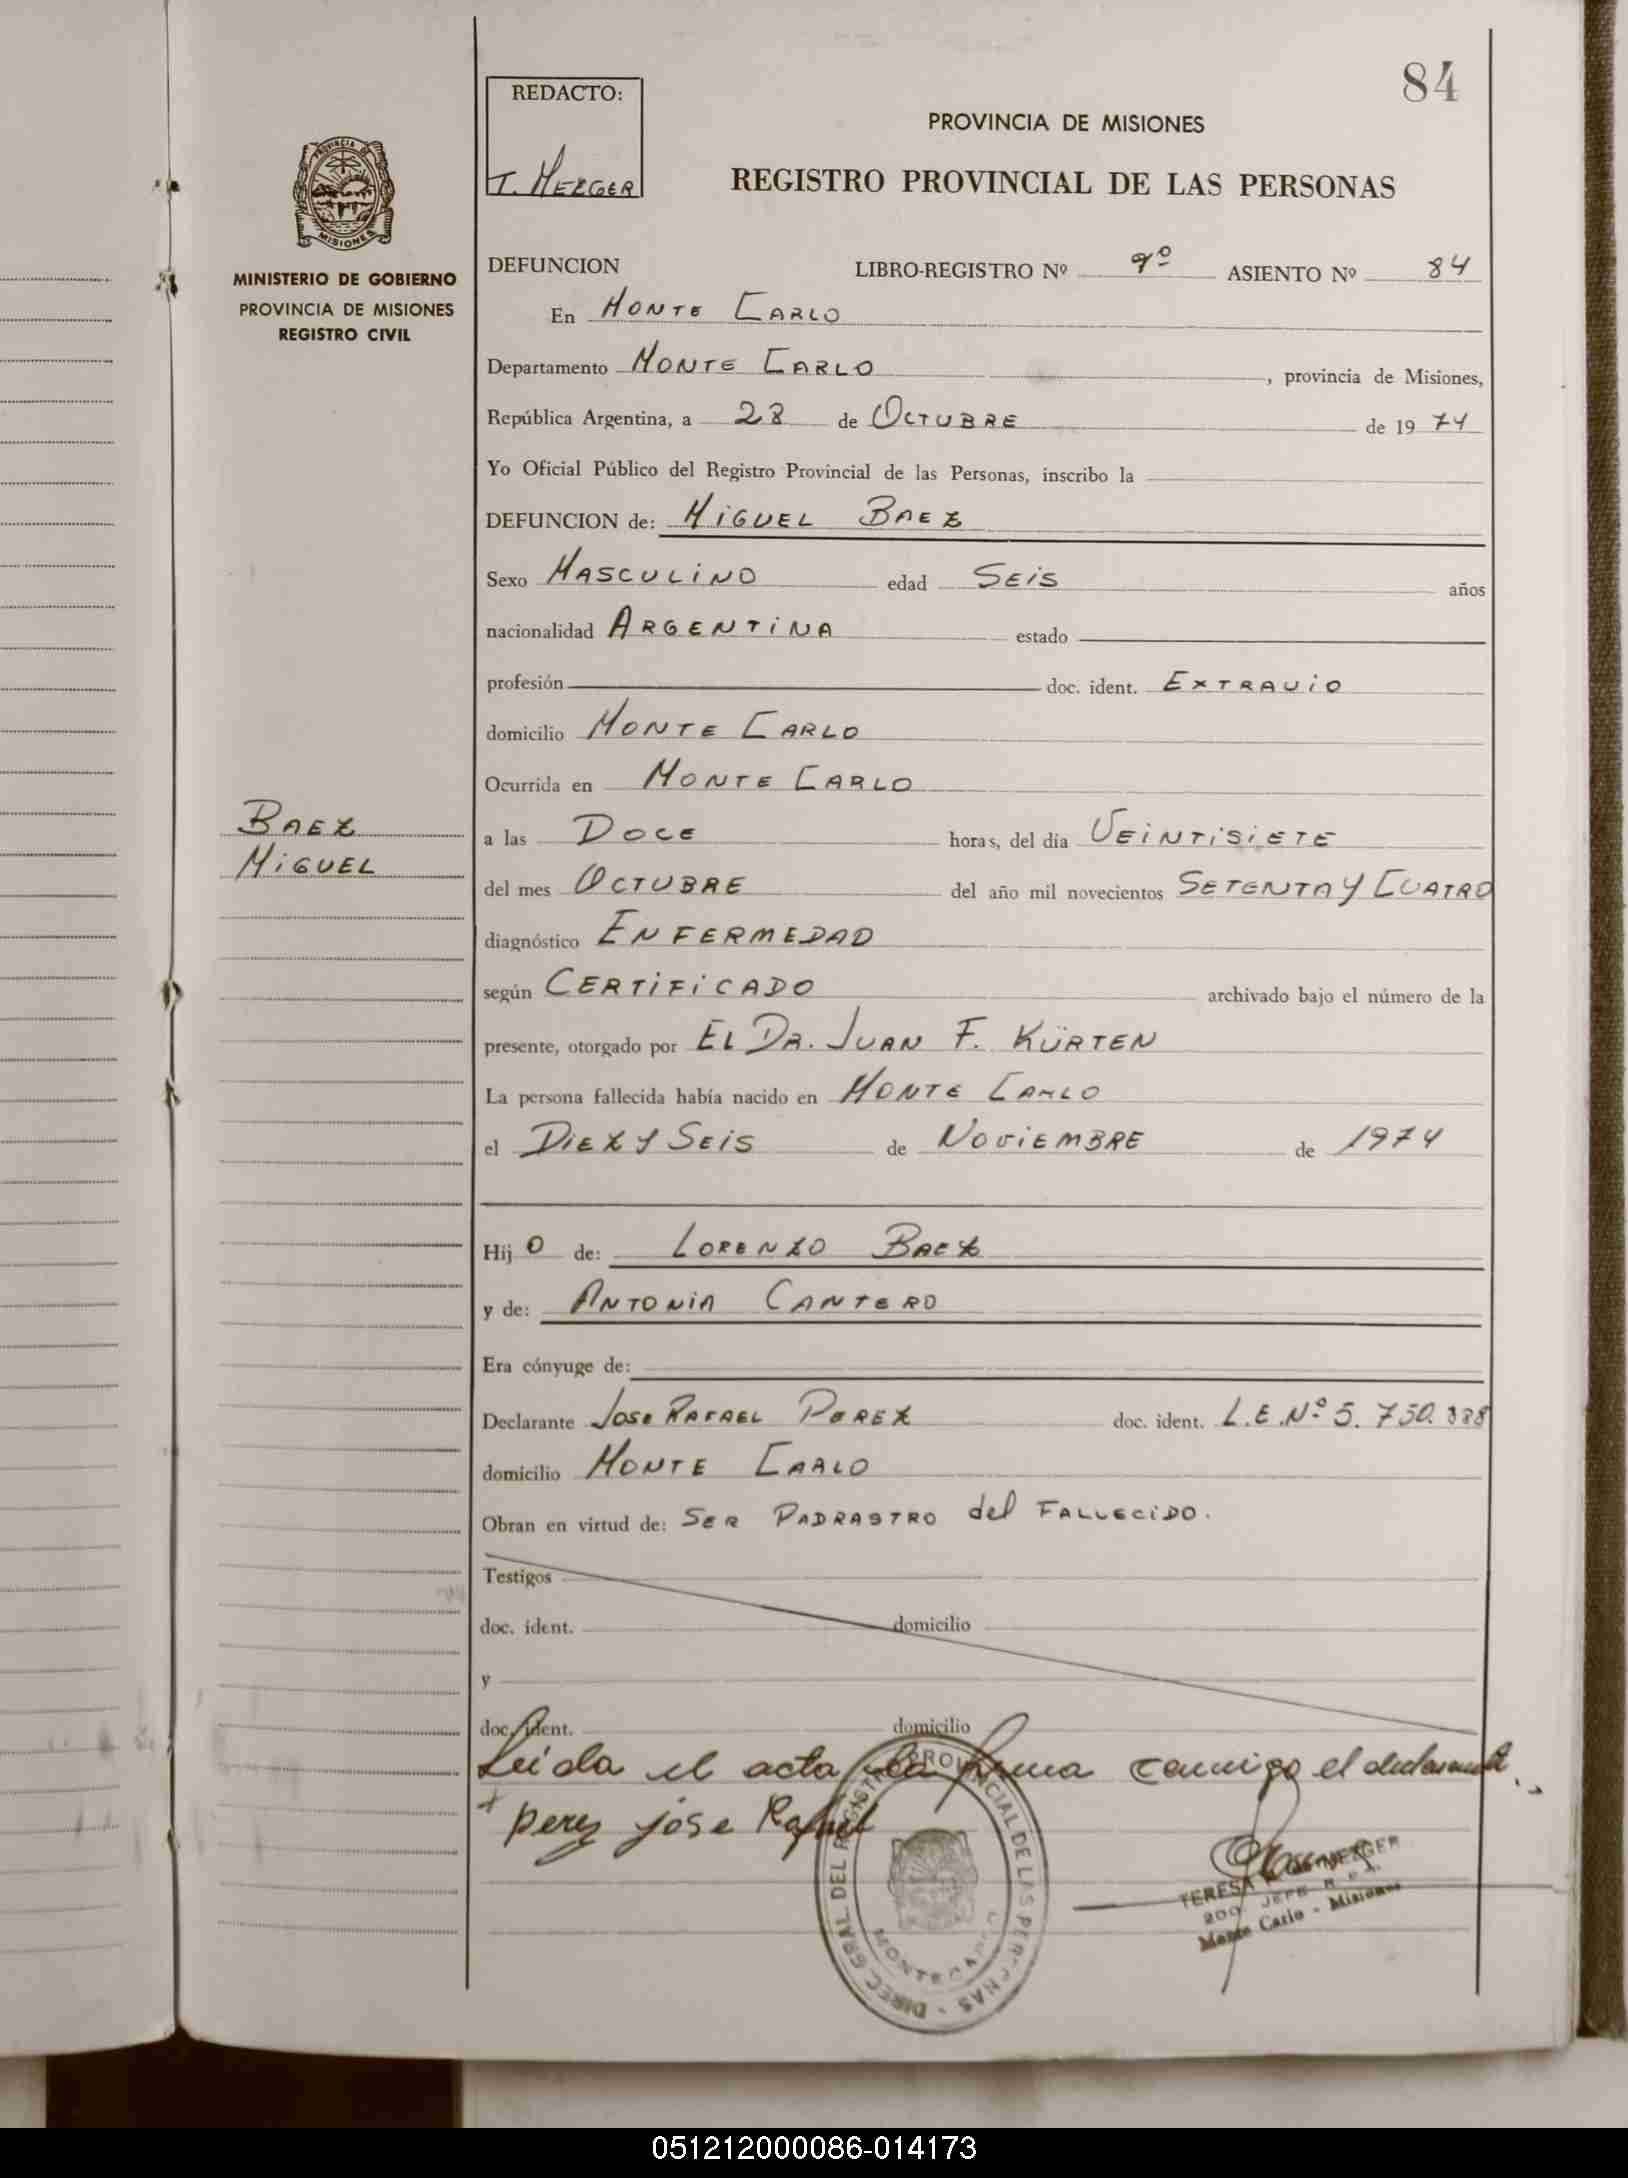 84
REDACTO:
T. MEZGER
PROVINCIA DE MISIONES
REGISTRO PROVINCIAL DE LAS PERSONAS
PROVINCIA DE
MISIONES
MINISTERIO DE GOBIERNO
PROVINCIA DE MISIONES
REGISTRO CIVIL
DEFUNCION LIBRO-REGISTRO Nº 9º ASIENTO Nº 84
En MONTE CARLO
Departamento MONTE CARLO, provincia de Misiones,
República Argentina, a 28 de OCTUBRE de 1974
Yo Oficial Público del Registro Provincial de las Personas, inscribo la
DEFUNCION de: MIGUEL BAEZ
Sexo MASCULINO edad SEIS años
nacionalidad ARGENTINA estado
profesión doc. ident. EXTRAVIO
domicilio MONTE CARLO
Ocurrida en MONTE CARLO
BAEZ
MIGUEL
a las DOCE horas, del día VEINTISIETE
del mes OCTUBRE del año mil novecientos SETENTA Y CUATRO
diagnóstico ENFERMEDAD
según CERTIFICADO archivado bajo el número de la
presente, otorgado por EL DR. JUAN F. KÜRTEN
La persona fallecida había nacido en MONTE CARLO
el DIEZ Y SEIS de NOVIEMBRE de 1974
Hij O de: LORENZO BAEZ
y de: ANTONIA CANTERO
Era cónyuge de:
Declarante JOSE RAFAEL PEREZ doc. ident. L.E.Nº 5.750.388
domicilio MONTE CARLO
Obran en virtud de: SER PADRASTRO del FALLECIDO.
Testigos
doc. ident. domicilio
y
doc. ident. domicilio
Leida el acta la firma conmigo el declarante
+ perez jose Rafael
DIREC. GRAL. DEL REGISTRO PROVINCIAL DE LAS PERSONAS
MONTECARLO
TERESA MEZGER
2DO. JEFE R. P.
Monte Carlo - Misiones
051212000086-014173